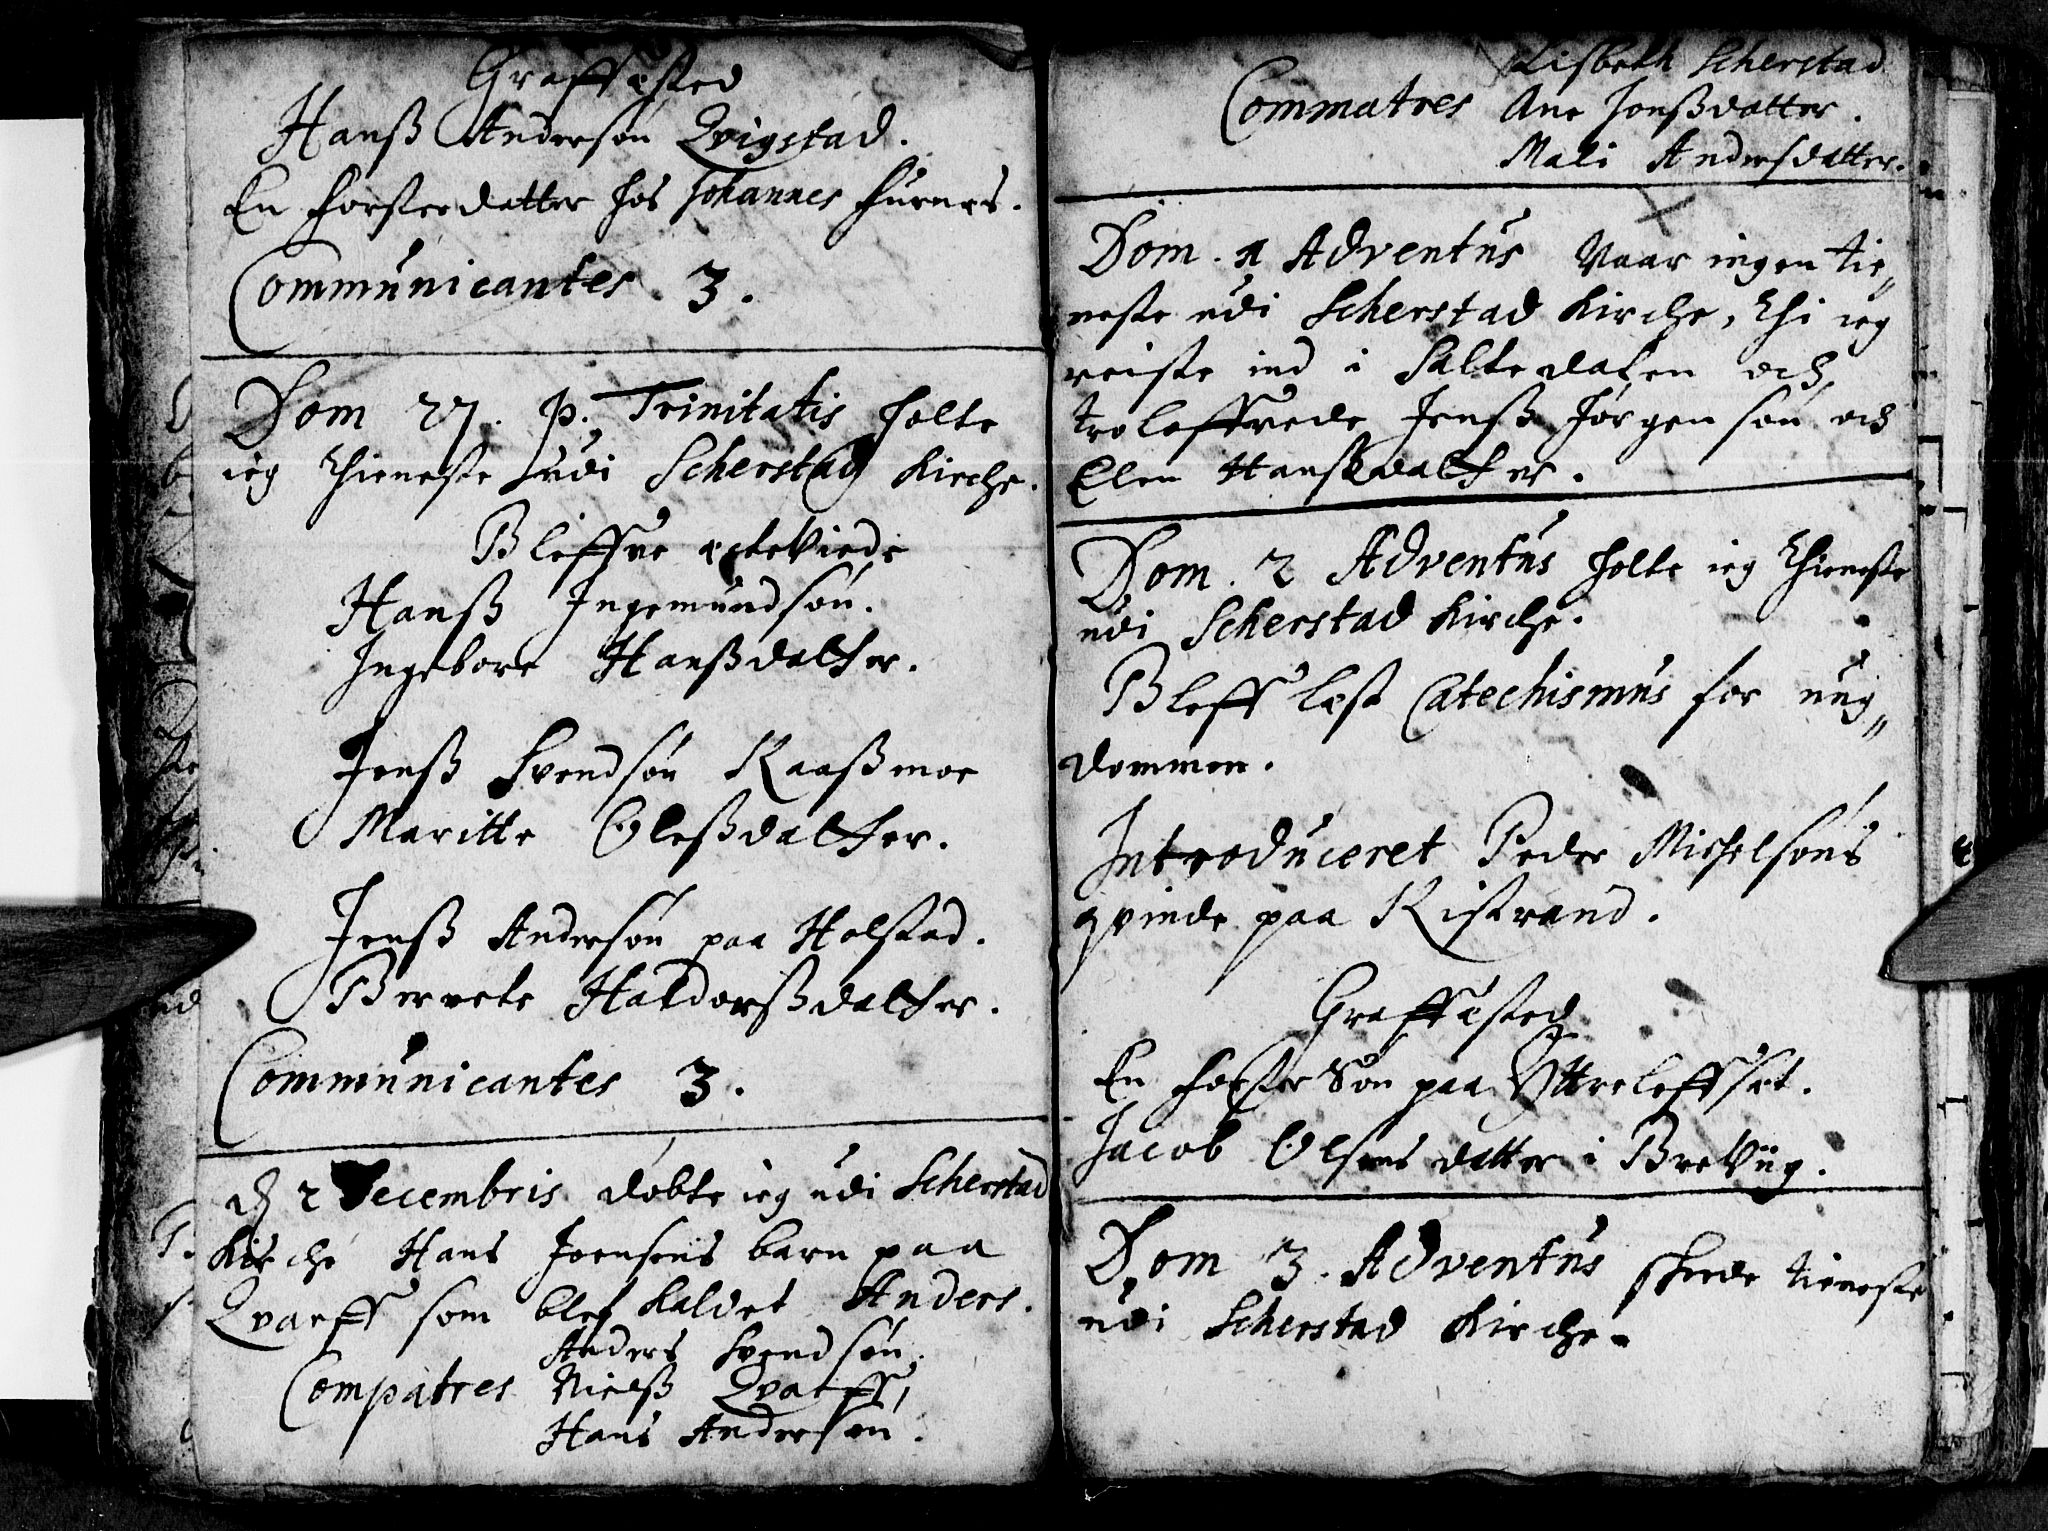 Graffæsted
Hanß Andersøn Qvigstad.
En fosterdatter hos Johannes Furnes.
Communicantes 3.
Dom 27. p. Trinitatis holte
ieg thieneste udi Scherstad Kirche.
Bleffve ecteviede
Hanß Ingemundsøn.
Ingebore Hanßdatter.
Jenß Svendsøn Kaaßmoe
Maritte Oleßdatter.
Jenß Andersøn paa Holstad.
Berrete Haldorßdatter.
Communicantes 3.
d 2 Decembris døbte ieg udi Scherstad
Kirche Hans Joensens barn paa
Qvarff som blef kaldet Anders.
Anders Svendsøn,
Compatres Nielß Qvarff,
Hans Andersøn.
Lisbeth Scherstad
Commatres Ane Jonßdatter.
Mali Andersdatter.
Dom. 1 Adventus Vaar ingen tie„
neste udi Scherstad Kirche, thi ieg
reiste ind i Saltedalen och
troloffvede Jenß Jørgensøn och
Elen Hanßdatter.
Dom. 2 Adventus holte ieg thieneste
udi Scherstad Kirche.
Bleff læst Catechismus for ung„
dommen.
Introduceret Peder Michelsøns
qvinde paa Ristrand.
Graffæsted
En foster Søn paa Yttreleffset.
Jacob Olsens datter i Breviig.
Dom 3. Adventus skeede tieneste
udi Scherstad Kirche.